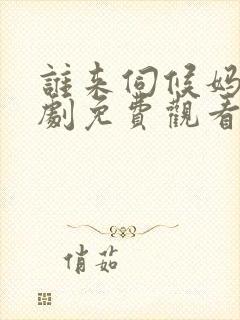 誰来伺候妈
劇免費觀看
俏茹